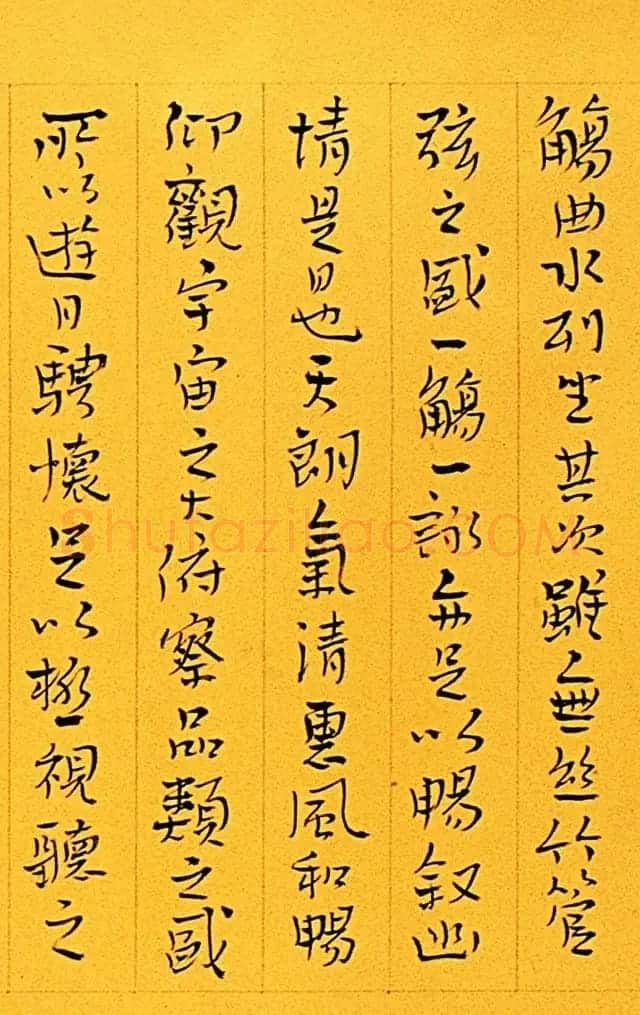 觴曲水列坐其次雖無絲竹管
弦之盛一觴一詠亦足以暢敘幽
情是日也天朗氣清惠風和暢
仰觀宇宙之大俯察品類之盛
所以遊目騁懷足以極視聽之
shufazidao.COM